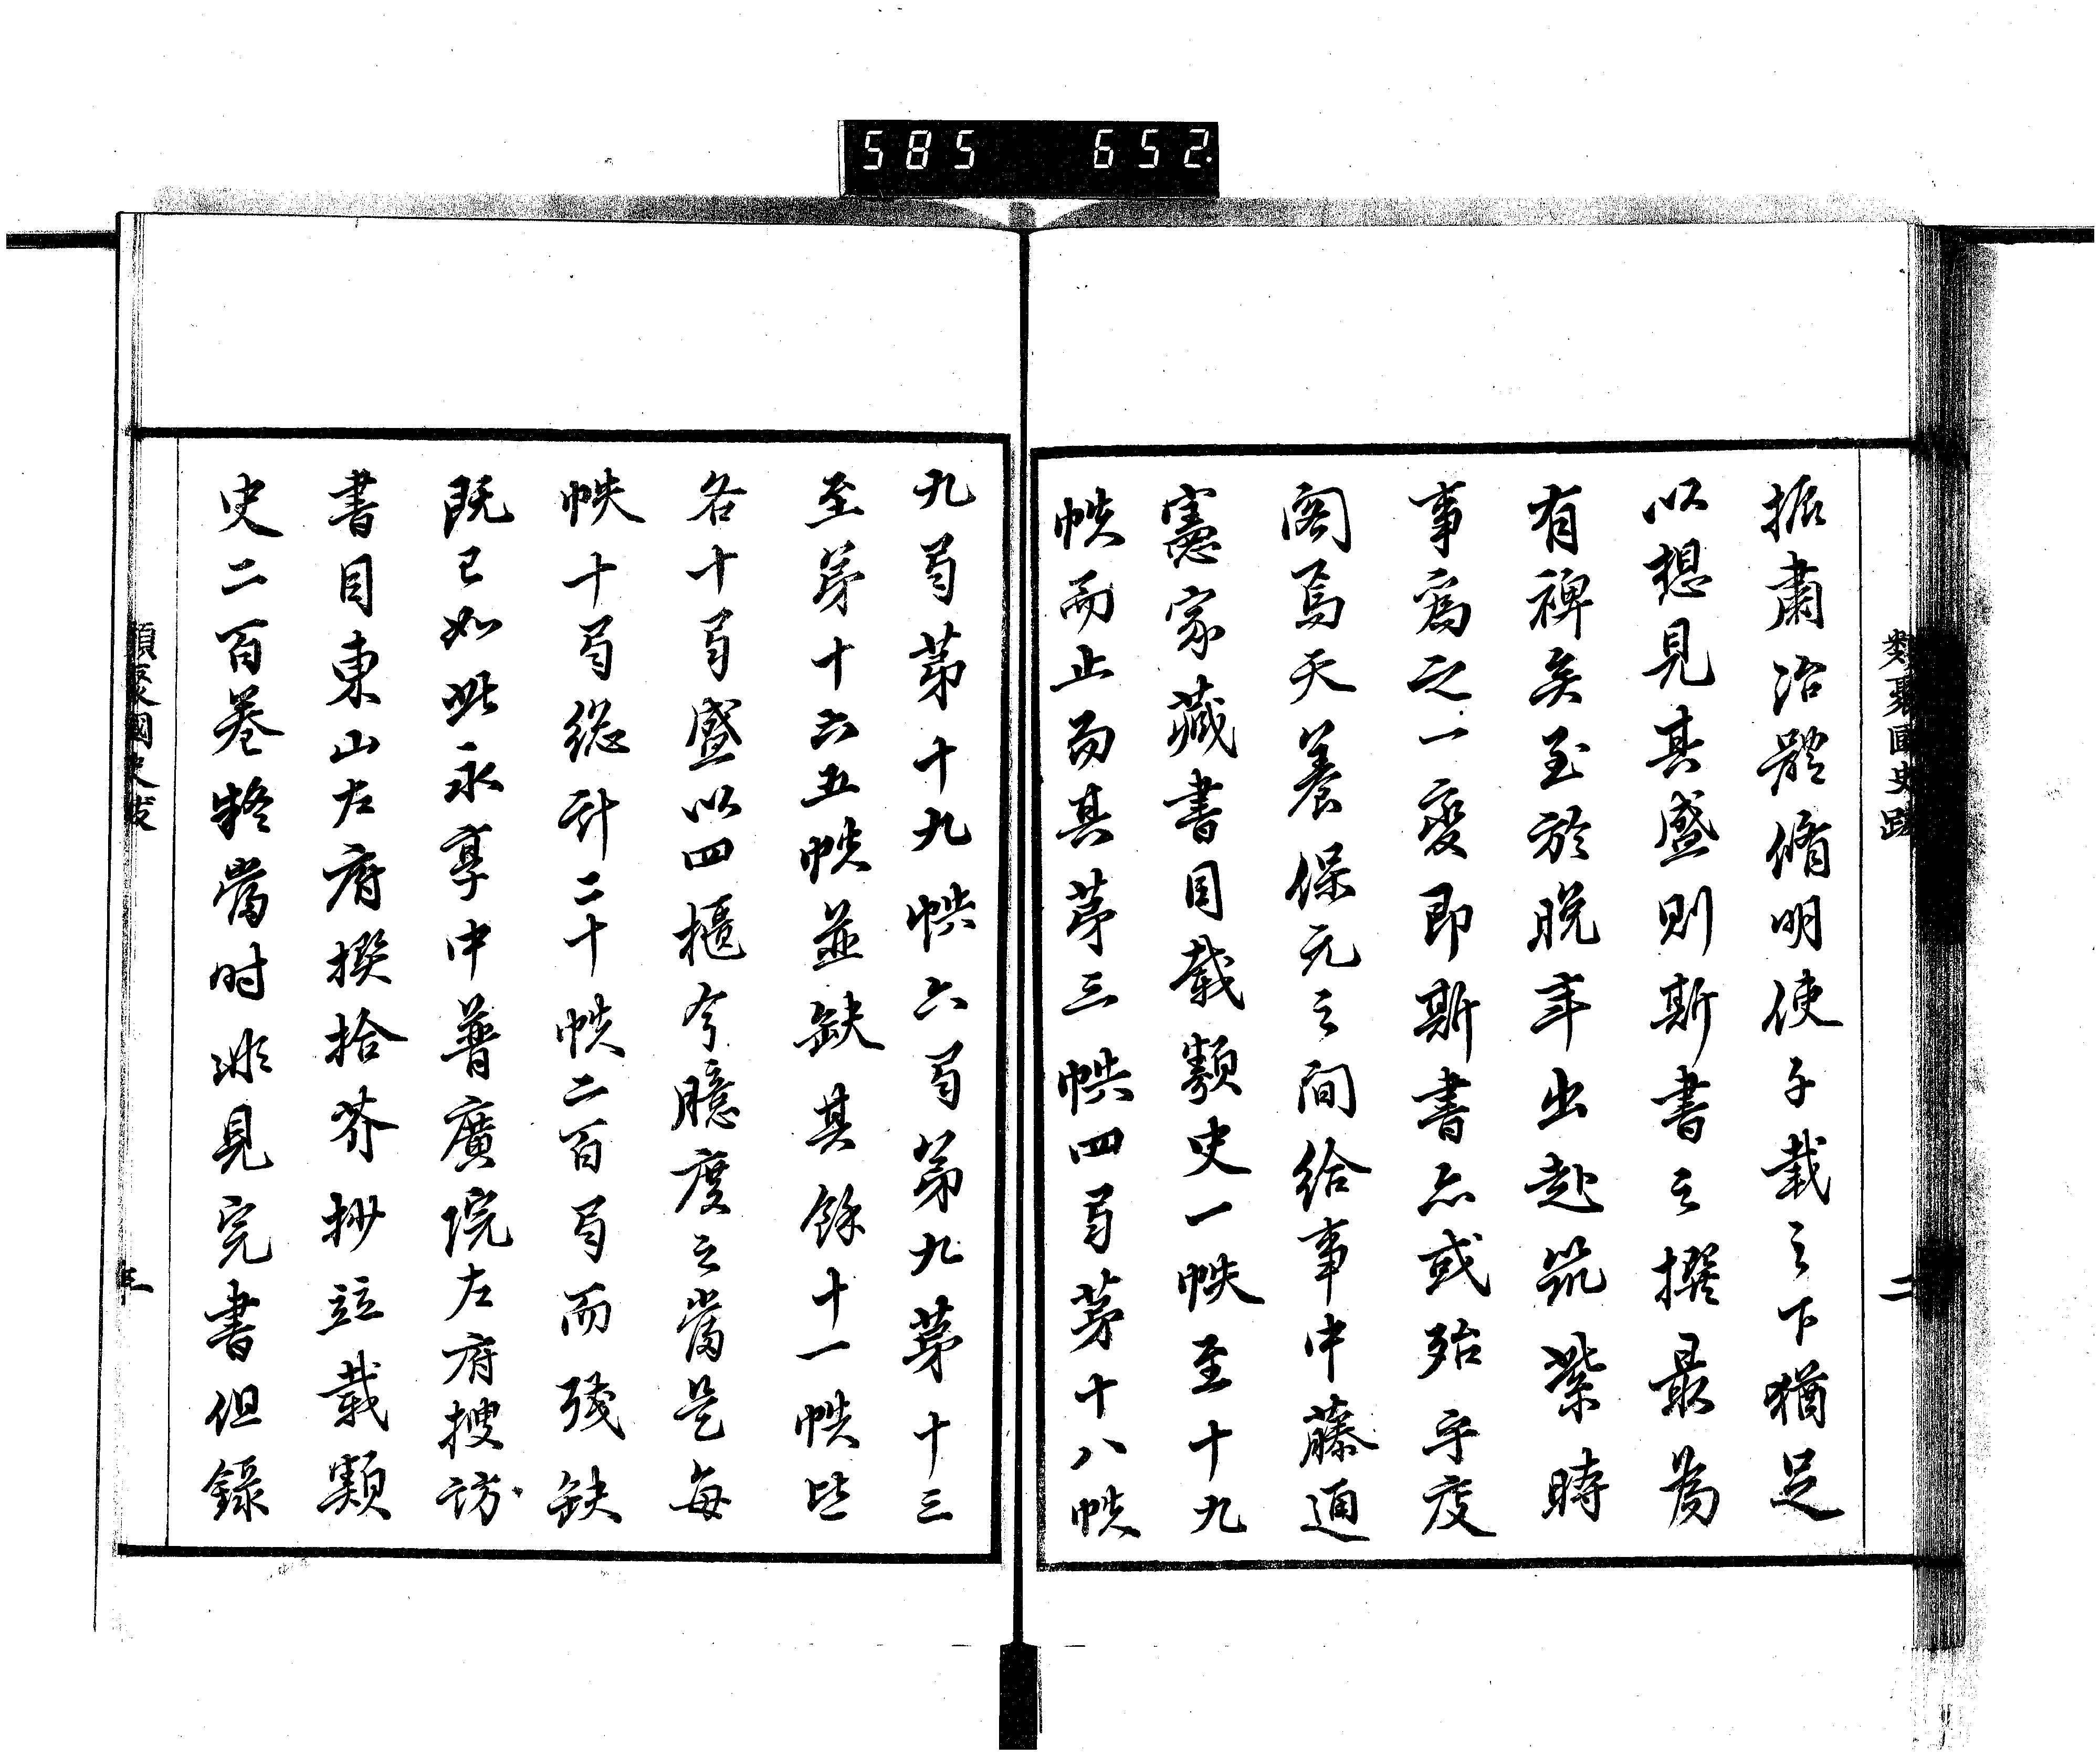 585 652
類聚國史跋 二
振肅治體脩明使千載之下猶足
以想見其盛則斯書之撰最爲
有裨矣至於晚年出赴筑紫時
事爲之一變即斯書亦或殆乎廢
閣焉天養保元之間給事中藤通
憲家藏書目載類史一帙至十九
帙而止而其第三帙四局第十八帙
九局第十九帙六局第九第十三
至第十六五帙並缺其餘十一帙皆
各十局盛以四櫃今臆度之當是每
帙十局総計二十帙二百局而殘缺
既已如此永享中普廣院左府搜訪
書目東山左府撰拾芥抄竝載類
史二百卷條當时非見完書但錄
類聚國史跋 三